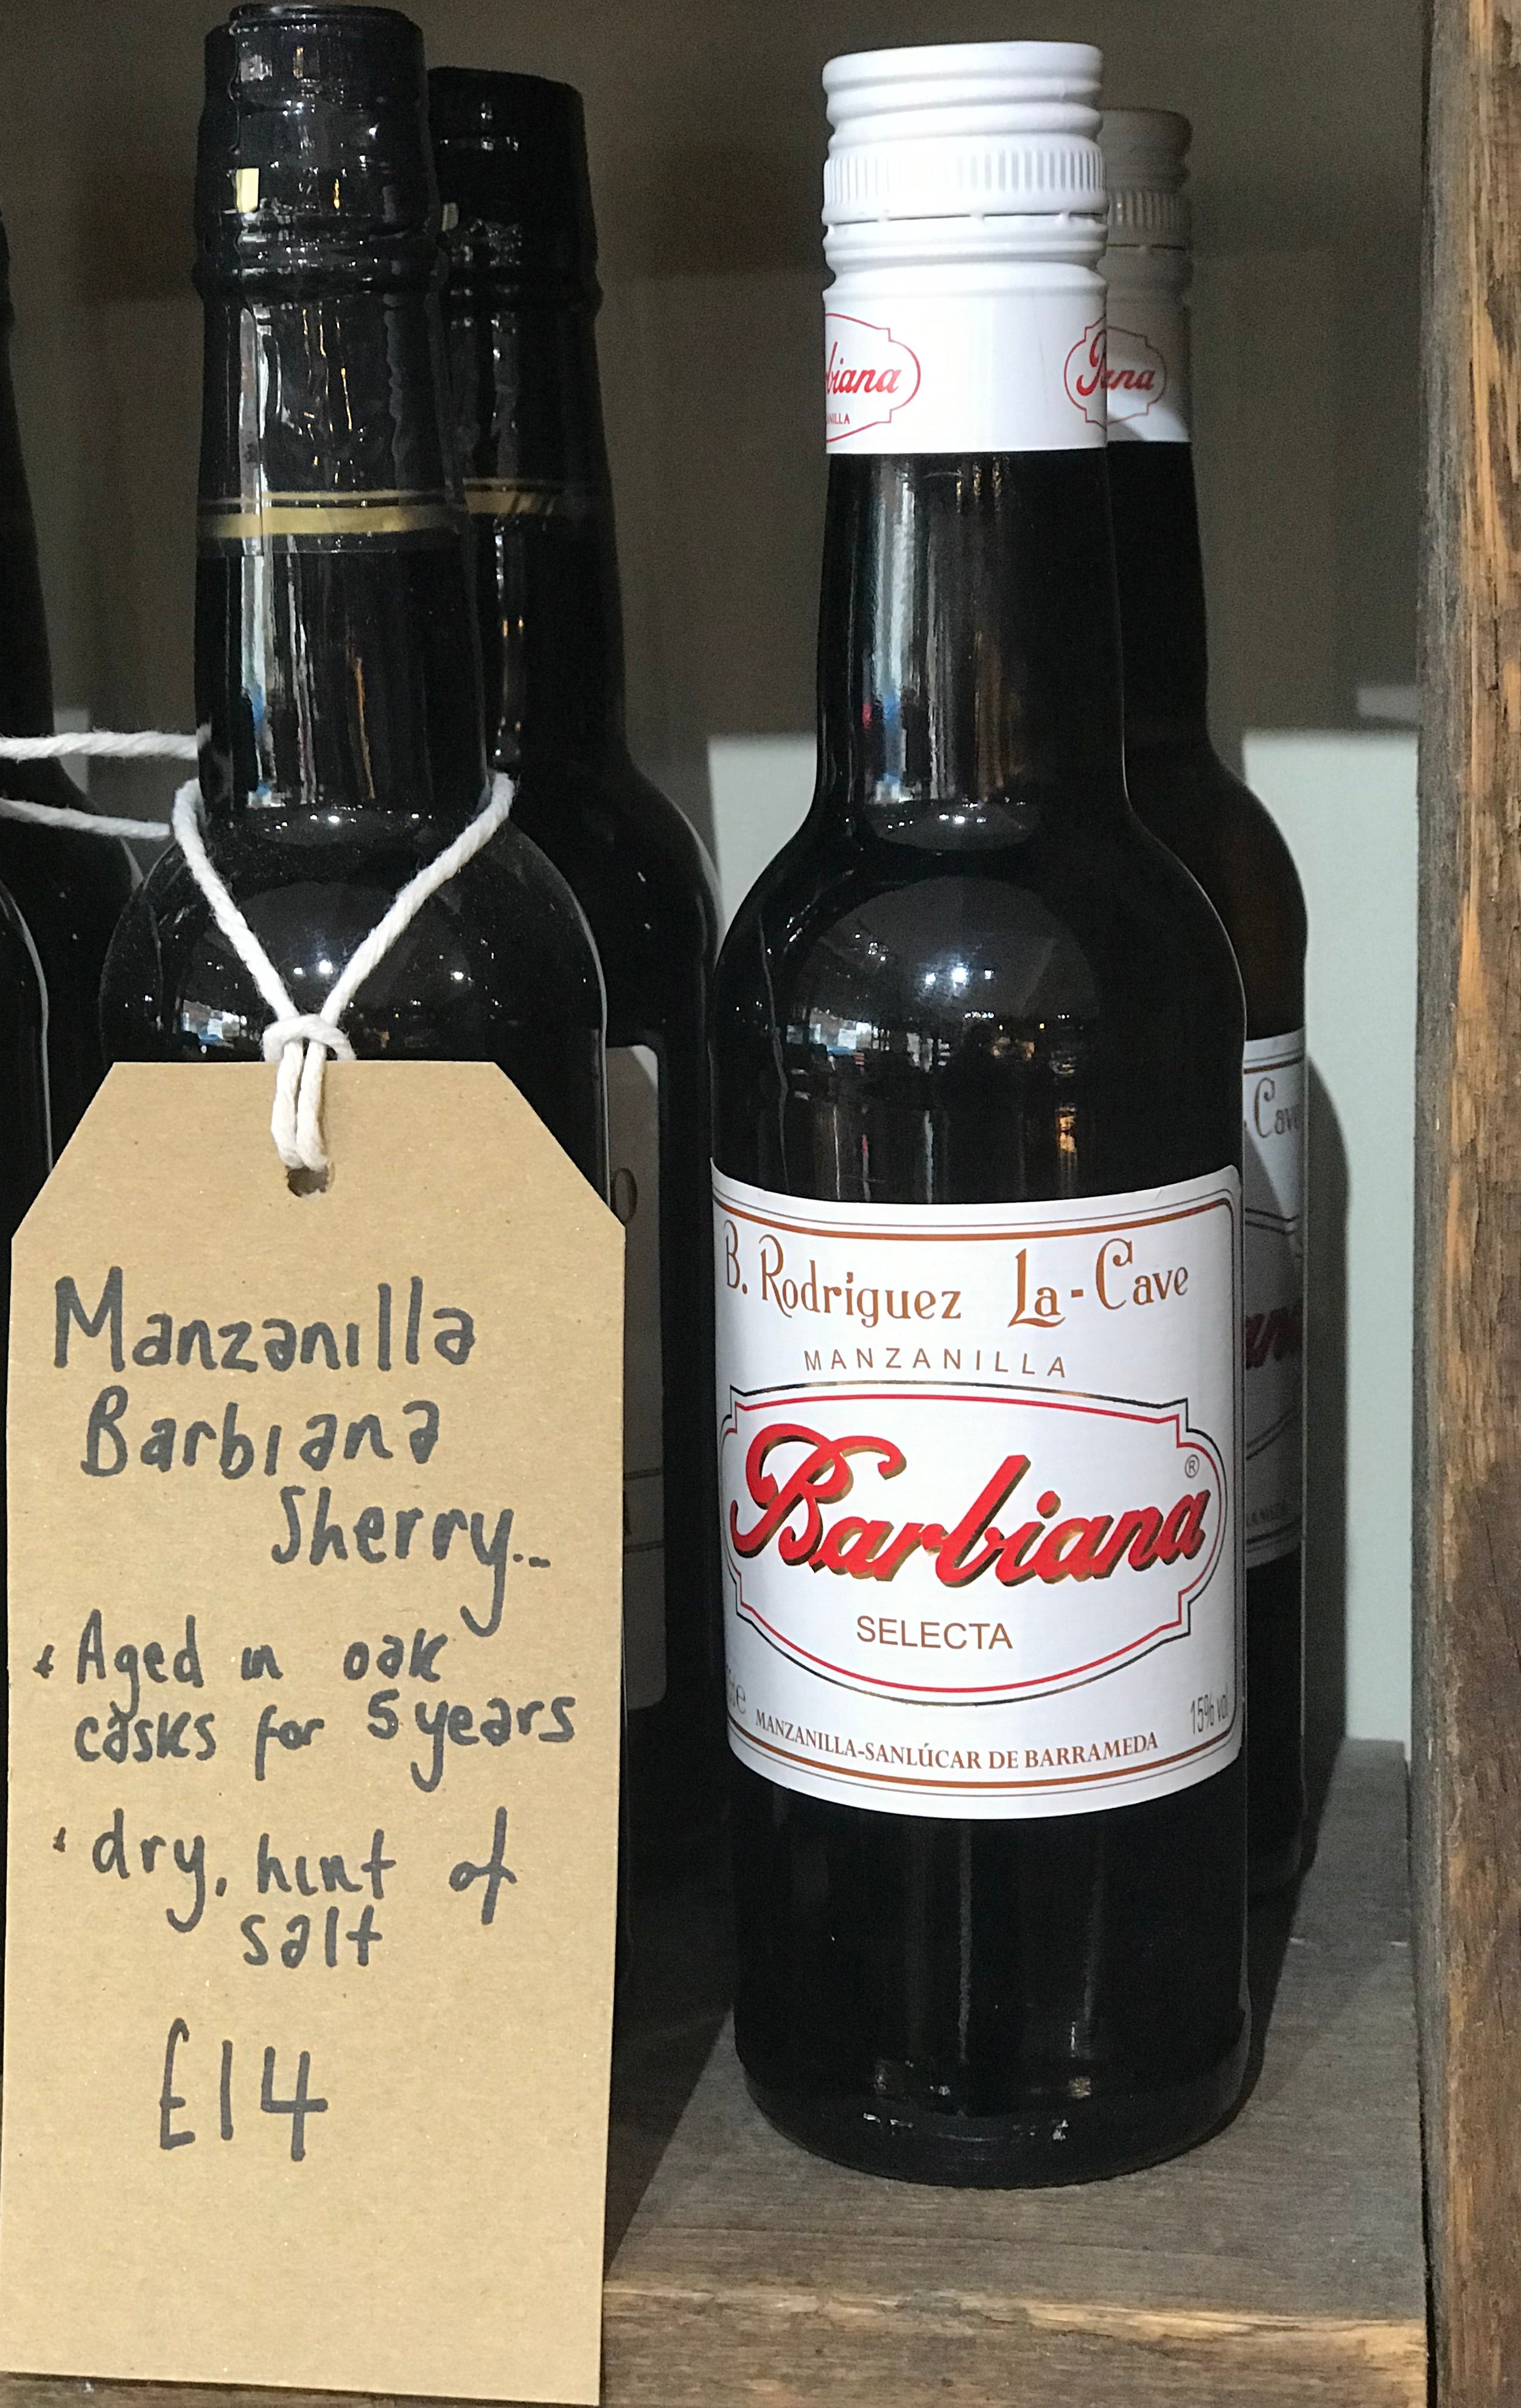 Manzanilla
Barbiana
Sherry..
Aged in oak
casks for 5 years
dry, hint of
salt
£14
biana
B. Rodriguez La-Cave
MANZANILLA
Barbiana®
SELECTA
15% vol
MANZANILLA-SANLÚCAR DE BARRAMEDA
Cave